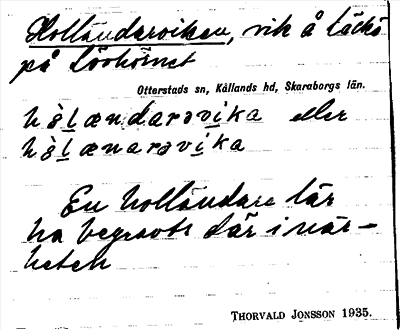 Holländareviken, vik å Läckö
på Lövhörnet
Otterstads sn, Kållands hd, Skaraborgs län.
hòlændarəvika eller
hòlænarəvika
En holländare lär
ha begravts där i när-
heten
THORVALD JONSSON 1935.